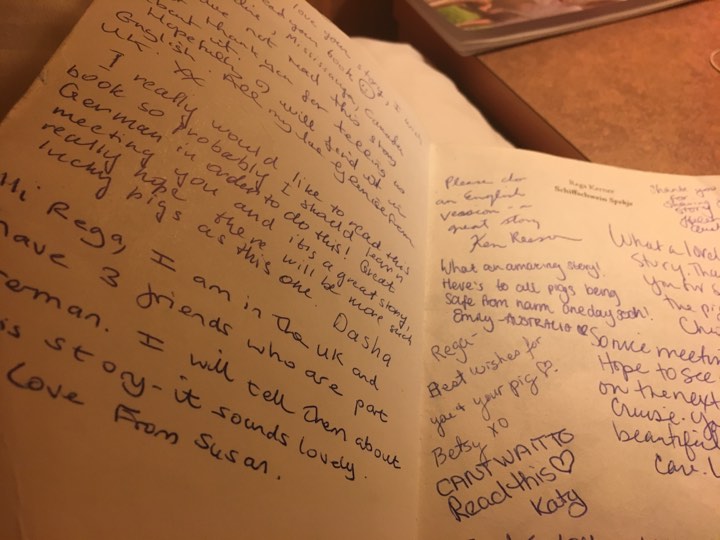 love your story, I wish
read your book
Mississauga, Canada
not read this story
but thank you for telling us
it.
Hopefully I will find it in
English
UK. XX
I really would like to read this
book so probably I should learn
German in order to do this! Great
meeting you and it is a great story,
really hope there will be more such
lucky pigs as this one. Dasha
Hi Rega, I am in the UK and
have 3 friends who are part
German. I will tell them about
this story - it sounds lovely.
Love From Susan.
Please do
an English
version ...
neat story
Ken
Rega Kerner
Schiffschwein Spekje
What an amazing story!
Here's to all pigs being
safe from harm one day soon!.
Emily - AUSTRALIA
Rega -
Best wishes for
you & your pig ♡.
Betsy XO
CANT WAIT TO
Read this ♡
Katy
Thank you
for
sharing
story
What a lovel
story. Tha
the pi
So nice meetin
Hope to see
on the next
Cruise. Yo
beautiful